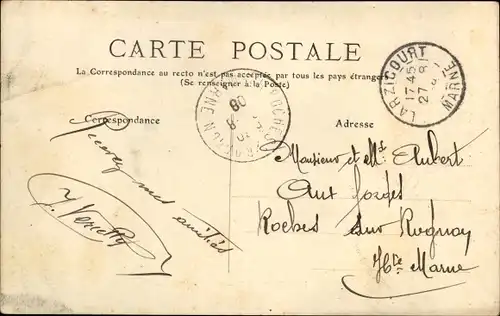 CARTE POSTALE
La Correspondance au recto n'est pas acceptée par tous les pays étrangers
(Se renseigner à la Poste)
Correspondance
Adresse
LARZICOURT
17 45
27
MARNE
Monsieur et Me Aubert
Aux forges
Roches sur Rognon
Hte Marne
mes amitiés